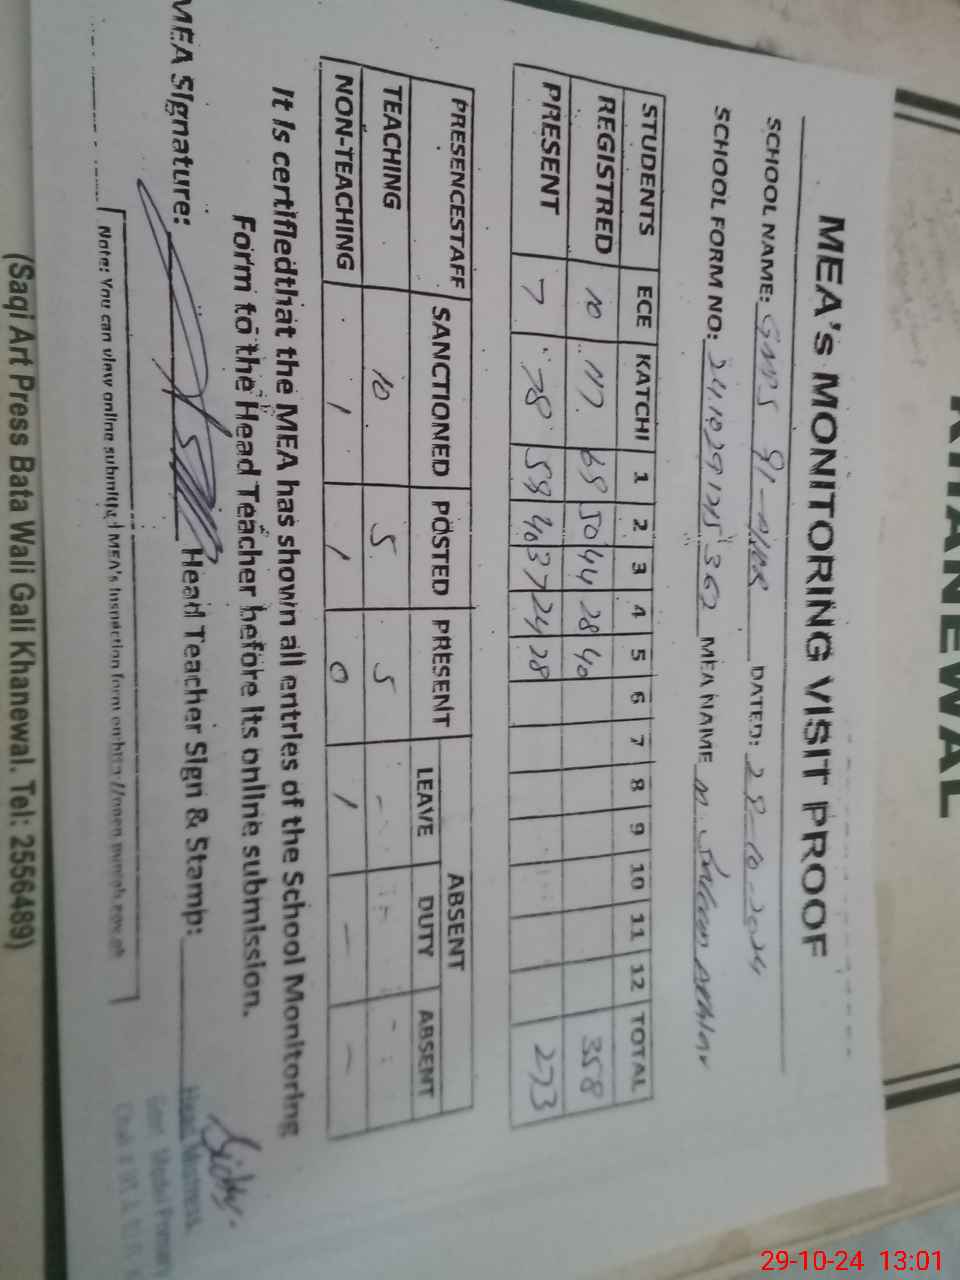 KHANEWAL
MEA's MONITORING VISIT PROOF
SCHOOL NAME: GMPS 91-A/10R DATED: 28-10-2024
SCHOOL FORM NO: MEA NAME M.
STUDENTS ECE KATCHI 1 2 3 4 5 6 7 8 9 10 11 12 TOTAL
REGISTRED 10 117 69 50 44 28 40 358
PRESENT 7 78 59 40 37 24 28 273
PRESENCESTAFF SANCTIONED POSTED PRESENT ABSENT
LEAVE DUTY ABSENT
TEACHING 10 5 5 - - -
NON-TEACHING 1 1 0 1 - -
It is certifiedthat the MEA has shown all entries of the School Monitoring
Form to the Head Teacher before its online submission.
MEA Signature: Head Teacher Sign & Stamp:
Head Mistress
Govt. Model Primary
Note: You can view online submitted MEA's Inspection form on
(Saqi Art Press Bata Wali Gali Khanewal. Tel: 2556489)
29-10-24 13:01